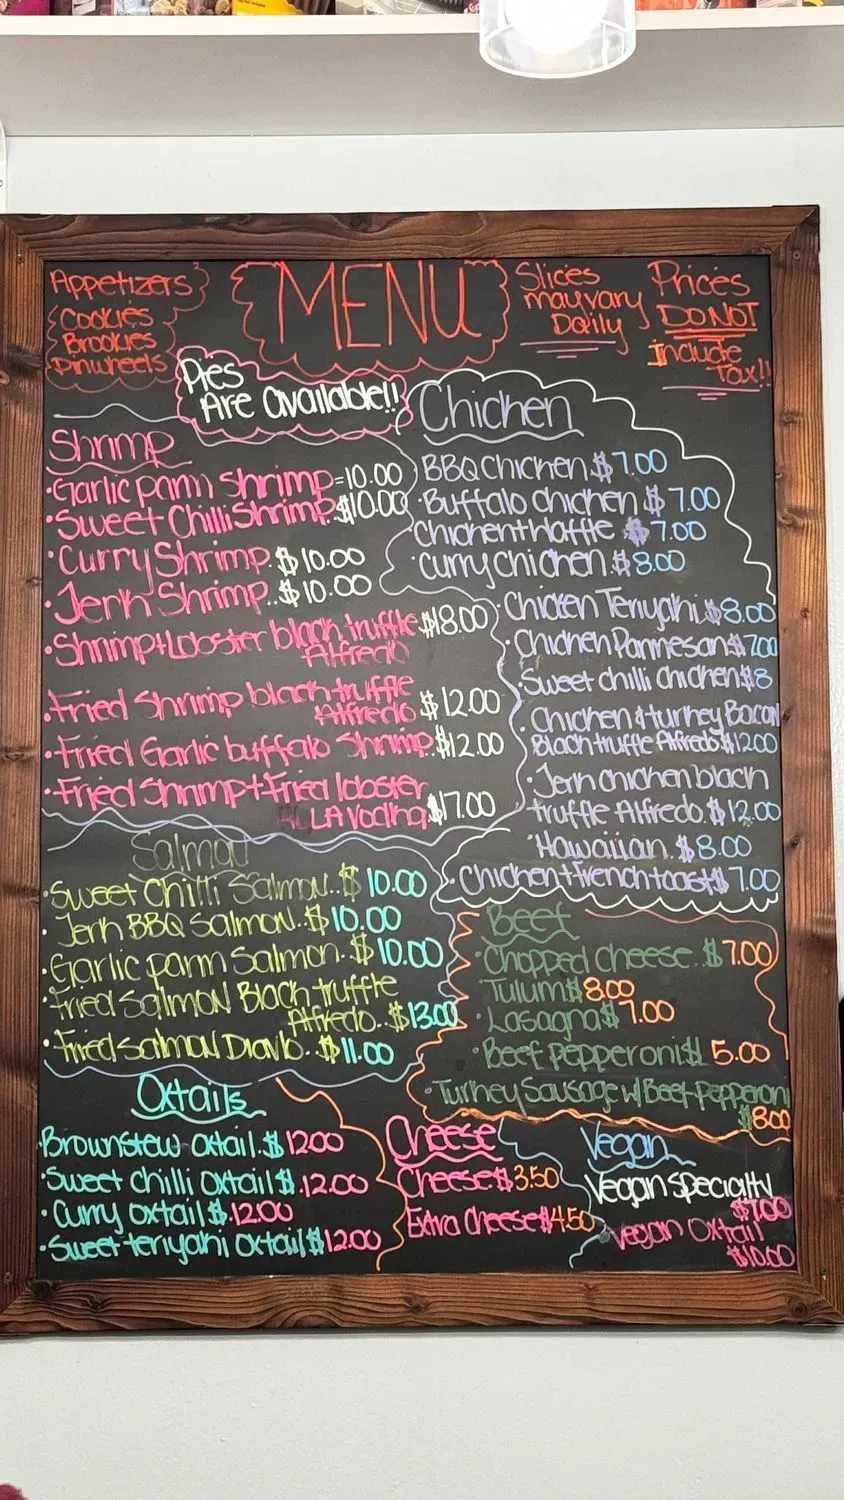 Appetizers
Cookies
Brookies
Pinwheels
MENU
Slices
may vary
Daily
Prices
DO NOT
Include
Tax!!
Pies
Are available!!
Shrimp
·Garlic parm Shrimp=10.00
·Sweet Chilli Shrimp $10.00
·Curry Shrimp.$10.00
·Jerk Shrimp..$10.00
·Shrimp+Lobster black truffle $18.00
Alfredo
·Fried Shrimp black truffle
Alfredo $12.00
·Fried Garlic buffalo Shrimp.$12.00
·Fried Shrimp+Fried lobster
LA Vodka $17.00
Chicken
BBQ Chicken.$7.00
·Buffalo chicken $7.00
Chicken+Waffle $7.00
·Curry chicken.$8.00
·Chicken Teriyaki.$8.00
·Chicken Parmesan$7.00
·Sweet chilli chicken$8
·Chicken & turkey Bacon
Black truffle Alfredo$12.00
·Jerk chicken black
truffle Alfredo.$12.00
·Hawaiian.$8.00
·Chicken+French toast$7.00
Salmon
·Sweet Chilli Salmon..$10.00
·Jerk BBQ Salmon.$10.00
·Garlic parm Salmon.$10.00
·Fried Salmon Black truffle
Alfredo..$13.00
·Fried Salmon Diavlo..$11.00
Beef
·Chopped cheese..$7.00
·Tulum$8.00
·Lasagna$7.00
·Beef pepperoni$15.00
·Turkey Sausage w/Beef pepperoni
$8.00
Oxtails
·Brownstew oxtail.$12.00
·Sweet chilli oxtail$.12.00
·Curry oxtail$.12.00
·Sweet teriyaki oxtail$12.00
Cheese
Cheese$3.50
Extra Cheese$4.50
Vegan
Vegan specialty
$7.00
Vegan Oxtail
$10.00